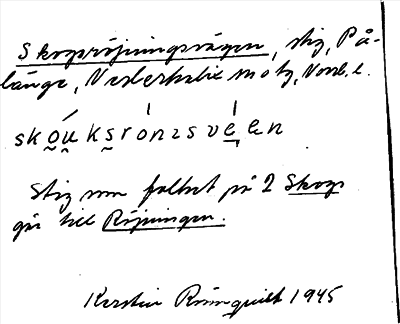 Skogsröjningsvägen, stig, På-
länge, Nederkalix
skou̯ksrónɪsvéen
Stig som folket på 2 Skogs
går till Röjningen.
Kerstin Rönnquist 1945